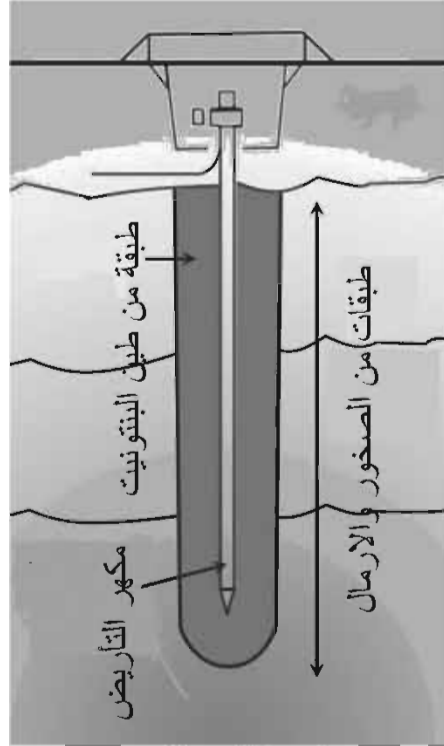 طبقة من طين البنتونيت
مكهر التأريض
طبقات من الصخور والارمال